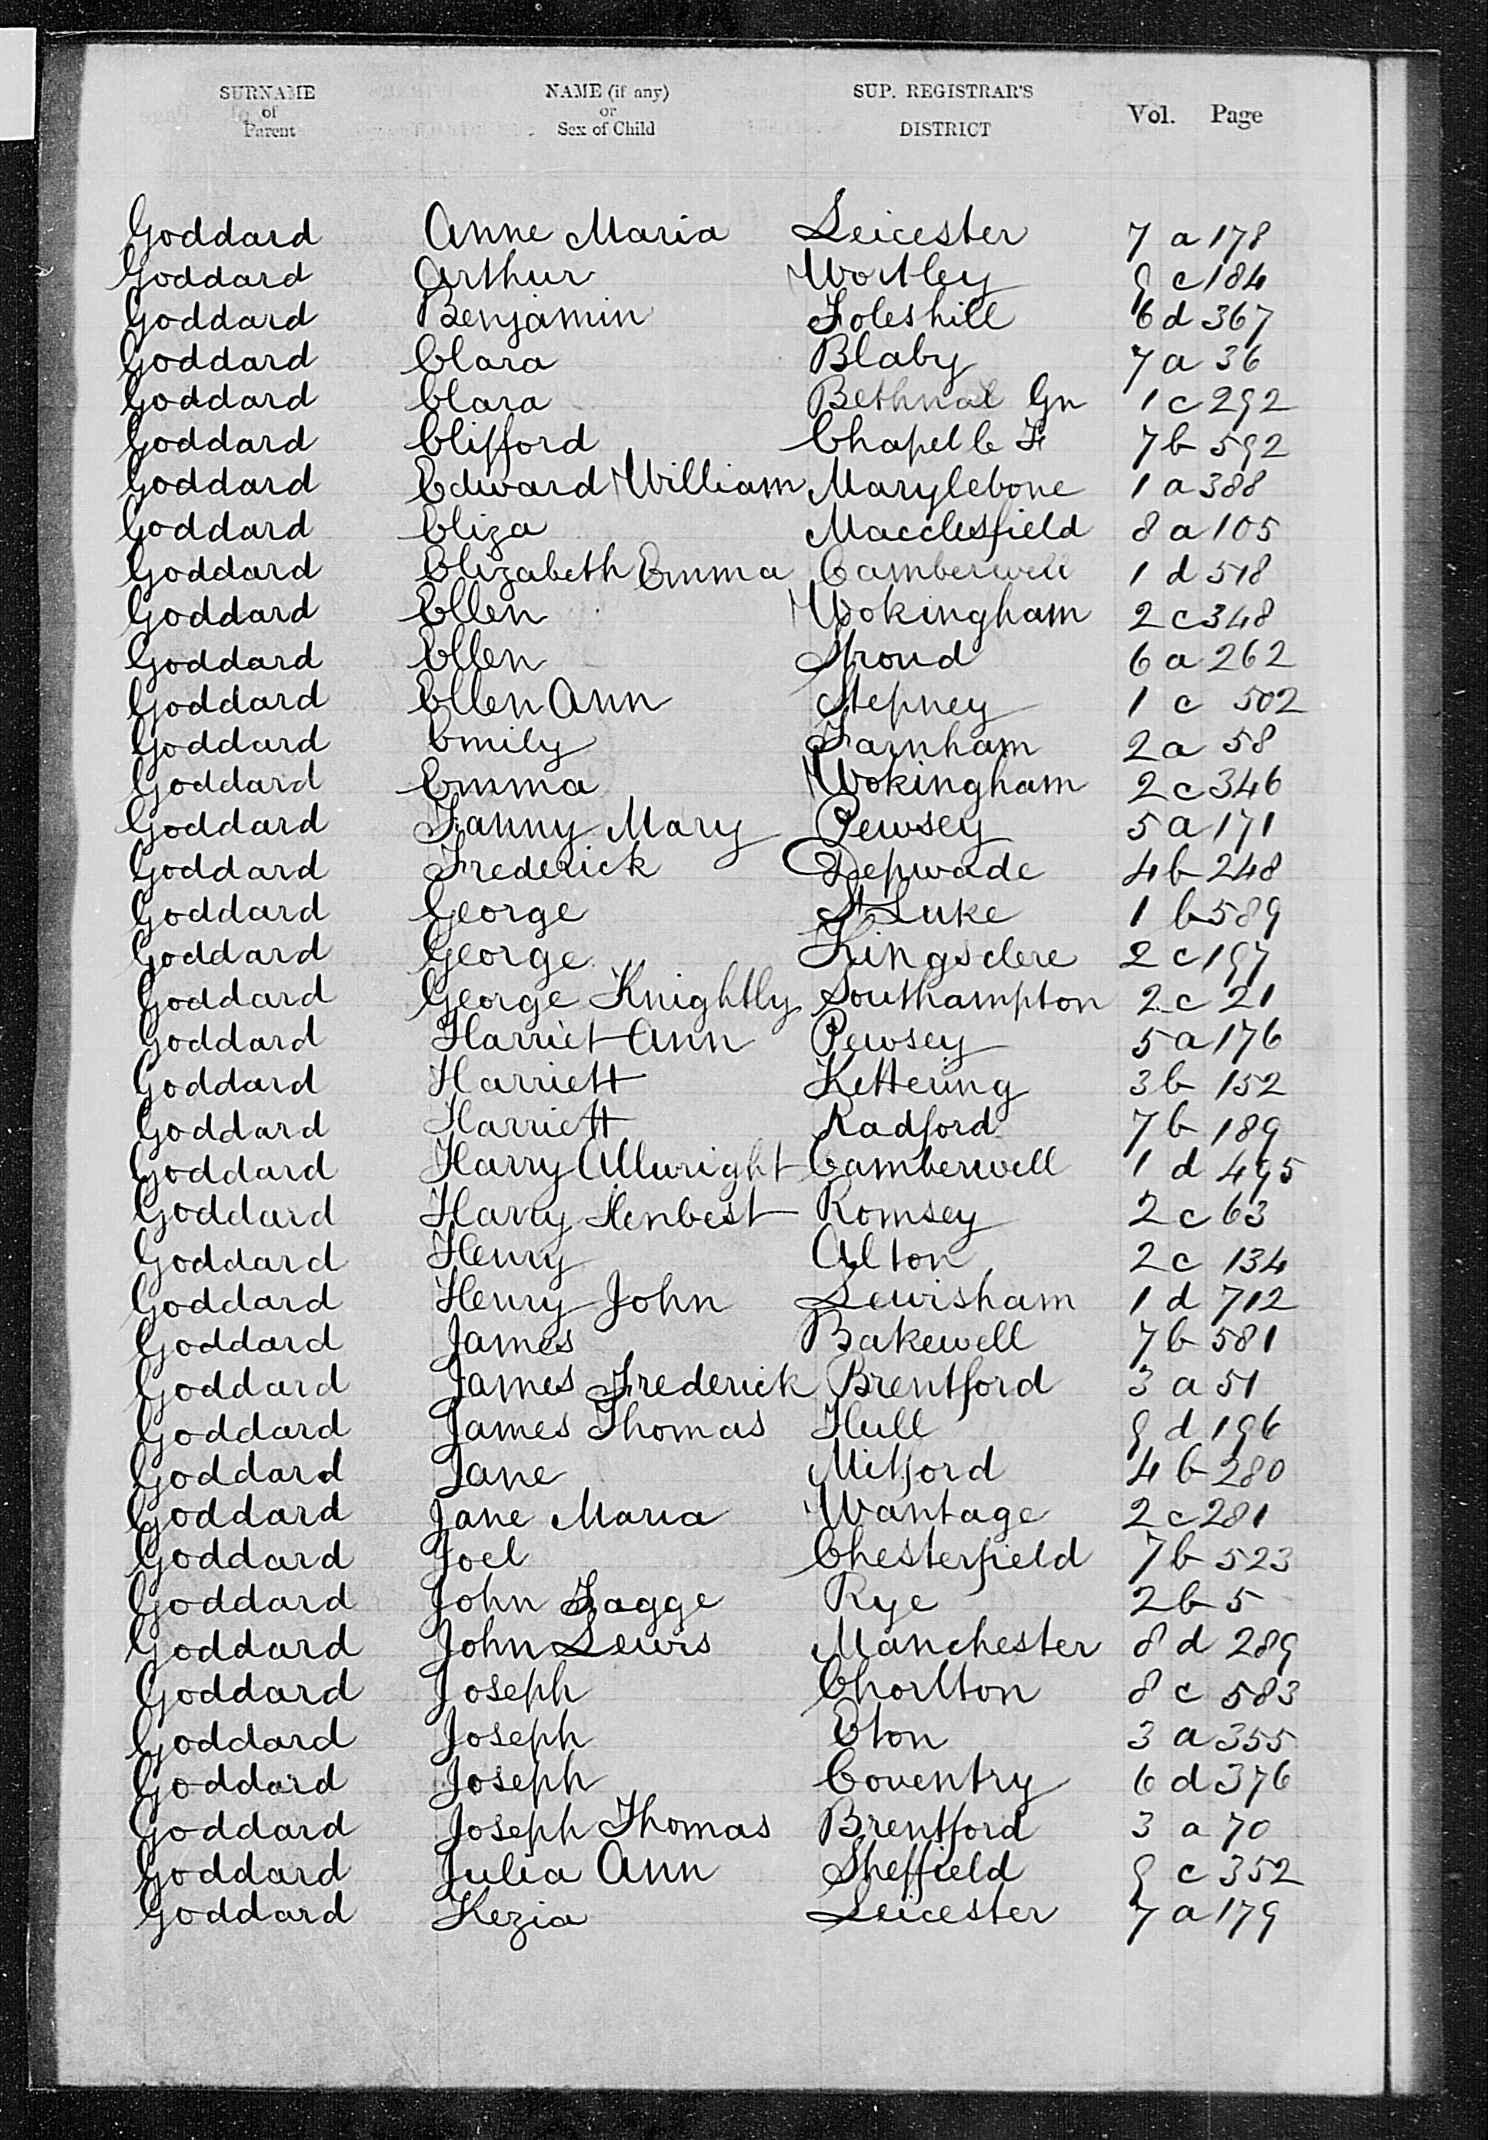 SURNAME of Parent NAME (if any) or Sex of Child SUP. REGISTRAR'S DISTRICT Vol. Page
Goddard Anne Maria Leicester 7 a 178
Goddard Arthur Wortley 9 c 184
Goddard Benjamin Foleshill 6 d 367
Goddard Clara Blaby 7 a 36
Goddard Clara Bethnal Gn 1 c 292
Goddard Clifford Chapel le F 7 b 592
Goddard Edward William Marylebone 1 a 388
Goddard Eliza Macclesfield 8 a 105
Goddard Elizabeth Emma Camberwell 1 d 518
Goddard Ellen Wokingham 2 c 348
Goddard Ellen Stroud 6 a 262
Goddard Ellen Ann Stepney 1 c 502
Goddard Emily Farnham 2 a 58
Goddard Emma Wokingham 2 c 346
Goddard Fanny Mary Pewsey 5 a 171
Goddard Frederick Depwade 4 b 248
Goddard George St Luke 1 b 589
Goddard George Kingsclere 2 c 197
Goddard George Knightly Southampton 2 c 21
Goddard Harriet Ann Pewsey 5 a 176
Goddard Harriett Kettering 3 b 152
Goddard Harriett Radford 7 b 189
Goddard Harry Allwright Camberwell 1 d 495
Goddard Harry Henbest Romsey 2 c 63
Goddard Henry Alton 2 c 134
Goddard Henry John Lewisham 1 d 712
Goddard James Bakewell 7 b 581
Goddard James Frederick Brentford 3 a 51
Goddard James Thomas Hull 9 d 196
Goddard Jane Mitford 4 b 280
Goddard Jane Maria Wantage 2 c 281
Goddard Joel Chesterfield 7 b 523
Goddard John Fagge Rye 2 b 5
Goddard John Lewis Manchester 8 d 289
Goddard Joseph Chorlton 8 c 583
Goddard Joseph Eton 3 a 355
Goddard Joseph Coventry 6 d 376
Goddard Joseph Thomas Brentford 3 a 70
Goddard Julia Ann Sheffield 9 c 352
Goddard Kezia Leicester 7 a 179